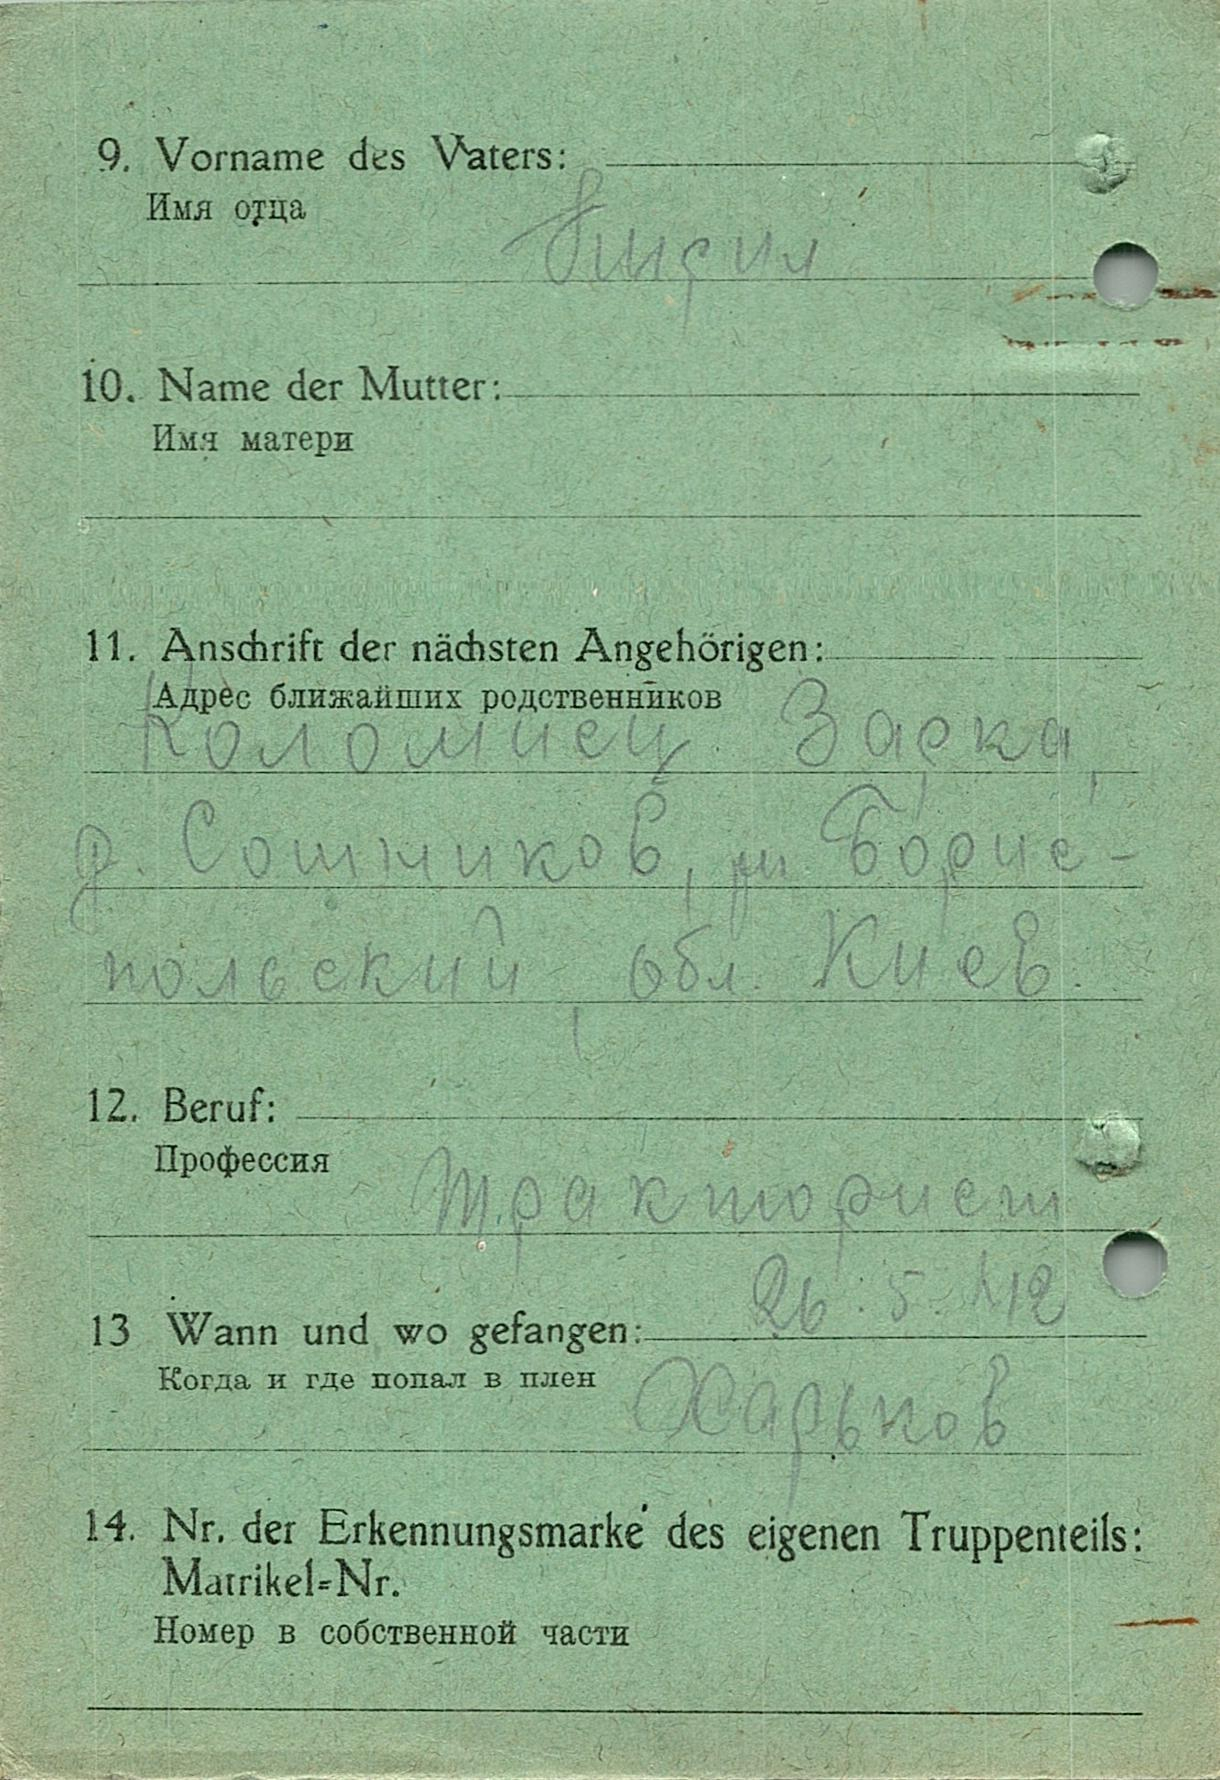 9. Vorname des Vaters:
Имя отца
10. Name der Mutter:
Имя матери
11. Anschrift der nächsten Angehörigen:
Адрес ближайших родственников
Коломиец Заркa,
д. Сошников, рн Борис-
польский обл. Киев.
12. Beruf:
Профессия
тракторист
26.5.42
13 Wann und wo gefangen:
Когда и где попал в плен
Харьков
14. Nr. der Erkennungsmarke des eigenen Truppenteils:
Matrikel=Nr.
Номер в собственной части